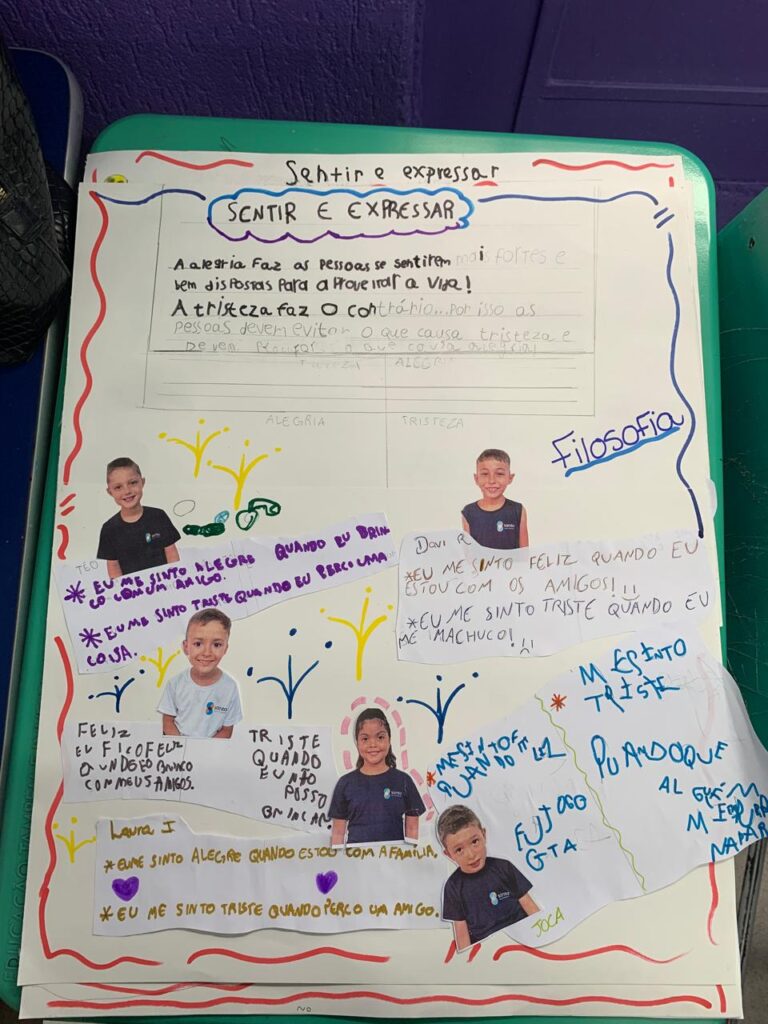 Sentir e expressar
SENTIR E EXPRESSAR
A alegria faz as pessoas se sentirem mais fortes e
bem dispostas para aproveitar a vida!
A tristeza faz o contrário... por isso as
pessoas devem evitar o que causa tristeza e
devem o que causa alegria!
ALEGRIA
ALEGRIA TRISTEZA
Filosofia
TEO
* EU ME SINTO ALEGRE QUANDO EU BRIN
CO COM UM AMIGO.
* EU ME SINTO TRISTE QUANDO EU PERCO UMA
COISA.
Davi R
*EU ME SINTO FELIZ QUANDO EU
ESTOU COM OS AMIGOS!!!
*EU ME SINTO TRISTE QUANDO EU
ME MACHUCO!
FELIZ
EU FICO FELIZ
QUNDEO BRINCO
COM MEUS AMIGOS.
TRISTE
QUANDO
EU NÃO
POSSO
BRINCAR
* ME SINTO
QUANDO
EU JOGO
GTA
* ME SINTO
TRISTE
QUANDO QUE
ALGUÉM
JOCA
Laura I
*EU ME SINTO ALEGRE QUANDO ESTOU COM A FAMÍLIA.
* EU ME SINTO TRISTE QUANDO PERCO UM AMIGO.